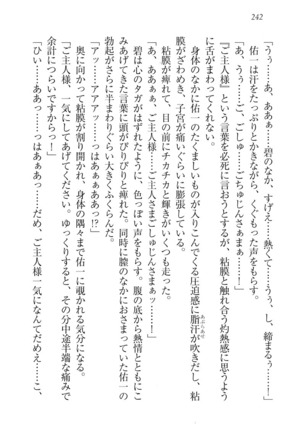 242
「う……、あ、ああぁ……碧のなか、すげえ……熱くて……っ、し、締まるぅ……！」
佑一は汗をたっぷりとかきながら、くぐもった声をもらす。
「あ、あああぁ……ご、ごちゅ……ごちゅじんさぁまぁ……っ」
『ご主人様』という言葉を必死に言おうとするが、粘膜と触れ合う灼熱感に思うように舌がまわってくれない。
身体のなかに佑一のたくましいものが入りこんでくる圧迫感に脂汗が吹きだし、粘膜がざわめき、子宮が痛いぐらいに膨張している。
粘膜が痺れて、目の前にチカチカと輝きがいくつも走った。
「あ、あぁぁぁ……ご主人様……ご主人さまごしゅじんさまぁッ……！」
碧は心のタガがはずれたように、色っぽい声をもらす。腹の底から熱情とともにこみあげてきた言葉に頭がぴりぴりと痺れた。同時に膣のなかにおさまっていた佑一の勃起がさらに半まわりぐらい大きくふくらんだ。
「アッ……アアアッ……っはぁぁぁああっ!?」
奥に向かって粘膜が割り開かれ、身体の隅々まで佑一に覗かれる気分になる。
「ご主人様、一気にしてあげてください。ゆっくりすると、その分中途半端な痛みで余計につらいですからっ！」
「ひぃ……ああっ……っはああっ……だめ、ご主人様一気になんてだめえ……！こ、